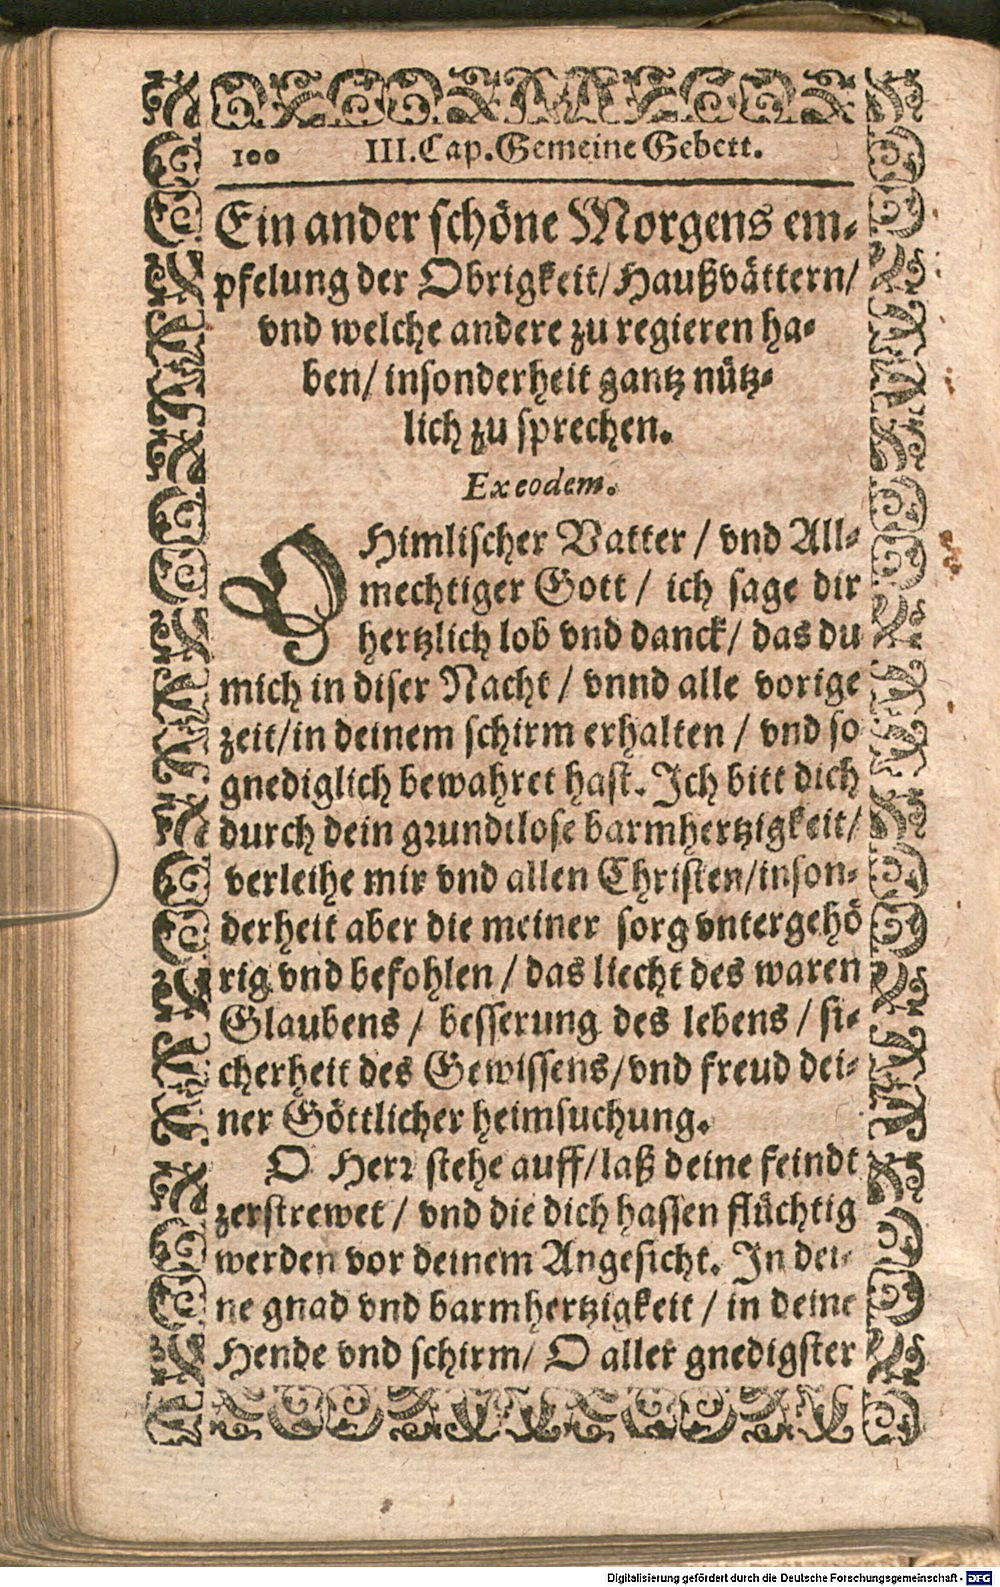 100 III. Cap. Gemeine Gebett.
Ein ander schöne Morgens em-
pfelung der Obrigkeit/ Haußvättern/
vnd welche andere zu regieren ha-
ben/ insonderheit gantz nütz-
lich zu sprechen.
Ex eodem.
O Himlischer Vatter / vnd All-
mechtiger Gott / ich sage dir
hertzlich lob vnd danck/ das du
mich in diser Nacht / vnnd alle vorige
zeit/in deinem schirm erhalten / vnd so
gnediglich bewahret hast. Ich bitt dich
durch dein grundtlose barmhertzigkeit/
verleihe mir vnd allen Christen/inson-
derheit aber die meiner sorg vntergehö
rig vnd befohlen / das liecht des waren
Glaubens / besserung des lebens / si-
cherheit des Gewissens/vnd freud dei-
ner Göttlicher heimsuchung.
O Herr stehe auff/laß deine feindt
zerstrewet / vnd die dich hassen flüchtig
werden vor deinem Angesicht. In dei-
ne gnad vnd barmhertzigkeit / in deine
Hende vnd schirm/ O aller gnedigster
Digitalisierung gefördert durch die Deutsche Forschungsgemeinschaft - DFG